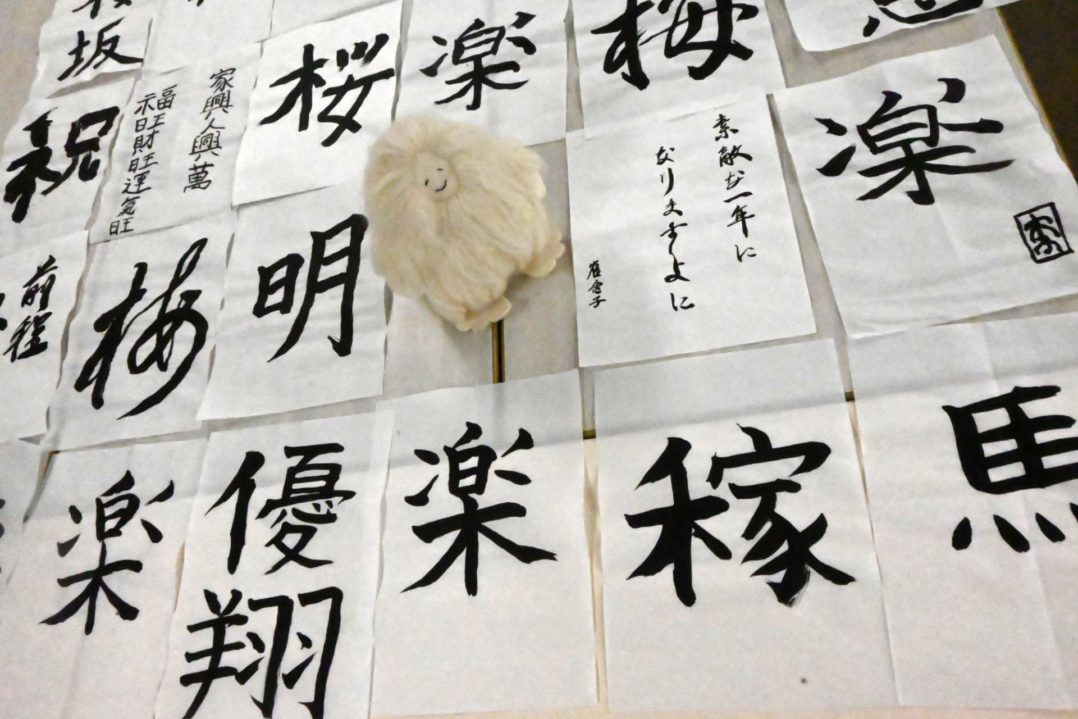 坂
家興人興萬
福旺財旺運氣旺
桜
楽
梅
祝
素敵な一年に
なりますように
楽
前程
梅
明
楽
優翔
楽
稼
馬